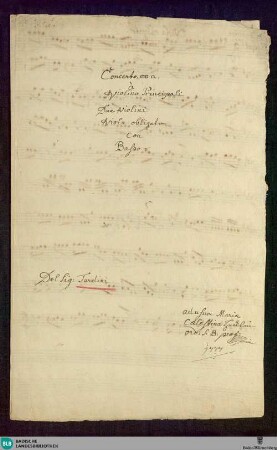 Concerto con
Violino Principale
Due Violini
Viola obligata
con
Basso
Del Sig: Tardini
ad usum Mariæ
1777
BLB BADISCHE
LANDESBIBLIOTHEK
Baden-Württemberg